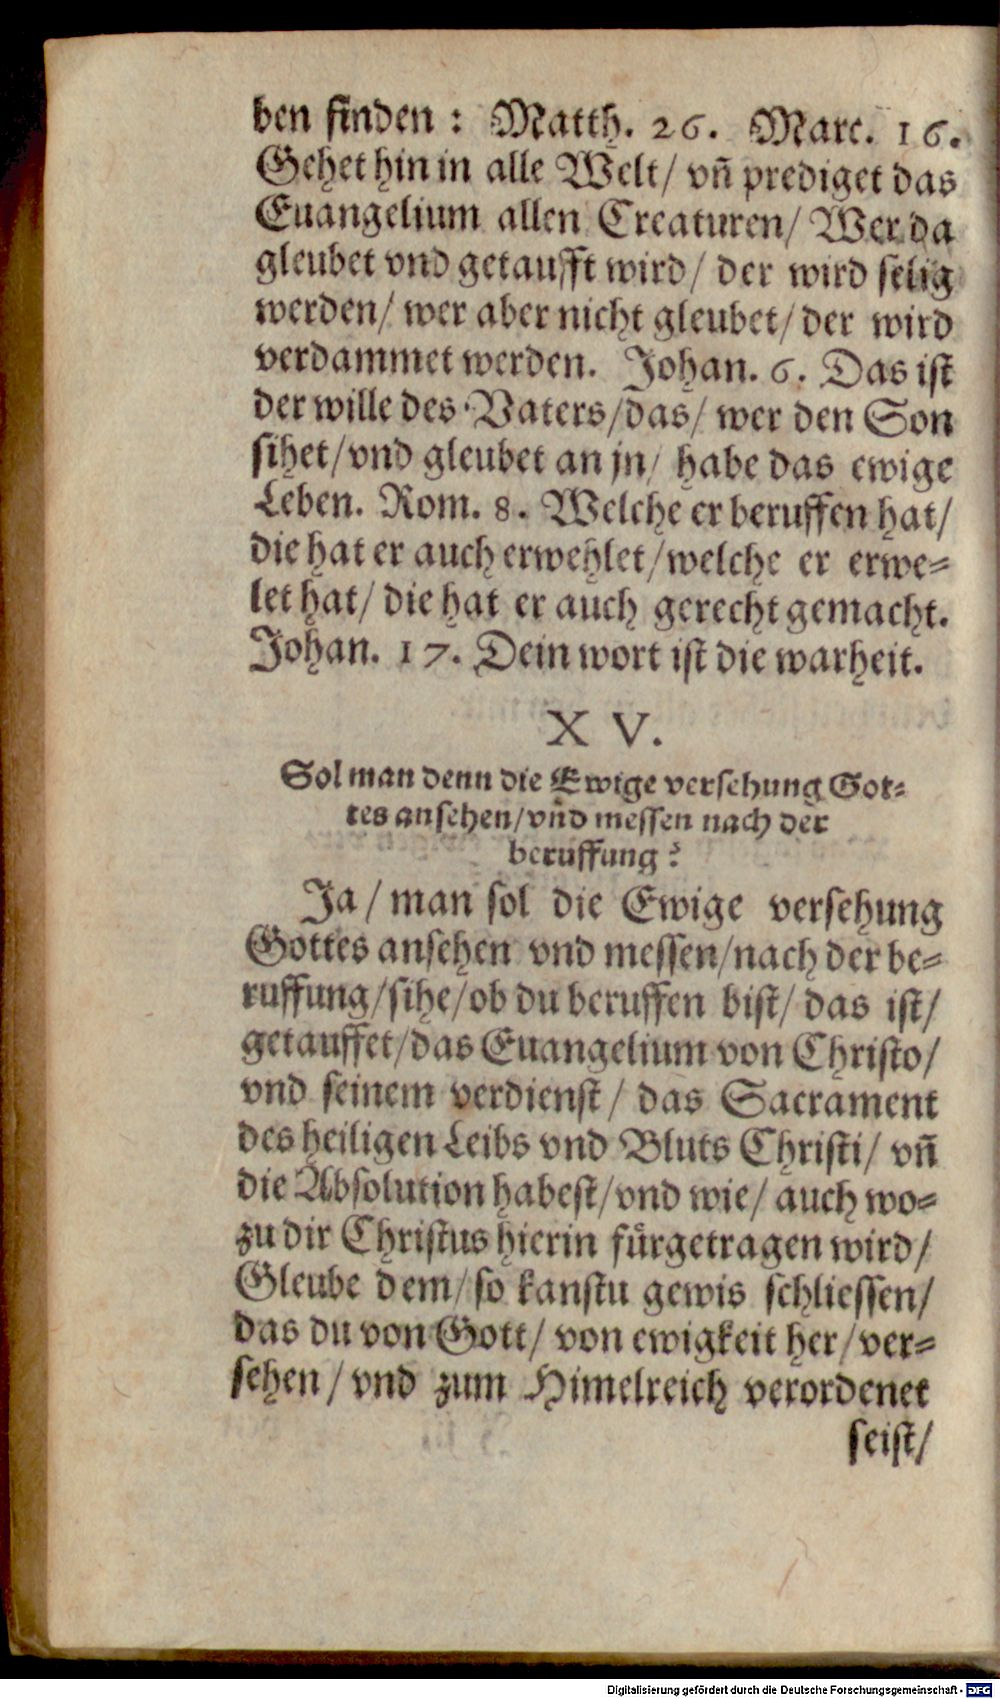 ben finden : Matth. 26. Marc. 16.
Gehet hin in alle Welt/ vñ prediget das
Euangelium allen Creaturen/ Wer da
gleubet vnd getaufft wird/ der wird selig
werden/ wer aber nicht gleubet/ der wird
verdammet werden. Johan. 6. Das ist
der wille des Vaters/das/ wer den Son
sihet/vnd gleubet an jn/ habe das ewige
Leben. Rom. 8. Welche er beruffen hat/
die hat er auch erwehlet/welche er erwe-
let hat/ die hat er auch gerecht gemacht.
Johan. 17. Dein wort ist die warheit.
XV.
Sol man denn die Ewige versehung Got-
tes ansehen/vnd messen nach der
beruffung?
Ja/ man sol die Ewige versehung
Gottes ansehen vnd messen/nach der be-
ruffung/sihe/ob du beruffen bist/ das ist/
getauffet/das Euangelium von Christo/
vnd seinem verdienst/ das Sacrament
des heiligen Leibs vnd Bluts Christi/ vñ
die Absolution habest/vnd wie/ auch wo-
zu dir Christus hierin fürgetragen wird/
Gleube dem/so kanstu gewis schliessen/
das du von Gott/ von ewigkeit her/ver-
sehen/vnd zum Himelreich verordenet
seist/
Digitalisierung gefördert durch die Deutsche Forschungsgemeinschaft - DFG